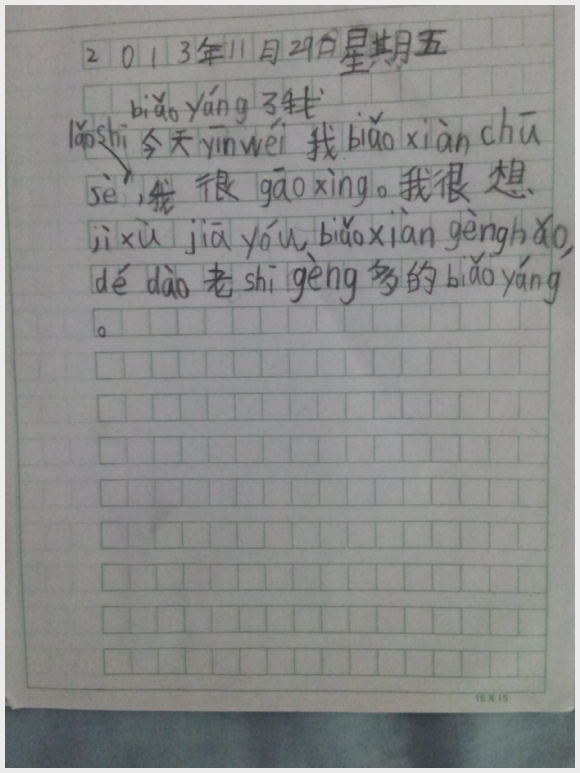 2013年11月29日星期五
biǎo yáng 了我
lǎoshī 今天 yīnwéi 我 biǎo xiàn chū
sè,我 很 gāo xìng。我很 想
jì xù jiā yóu, biǎo xiàn gèng hǎo,
dé dào 老 shī gèng 多的 biǎo yáng
。
16×15